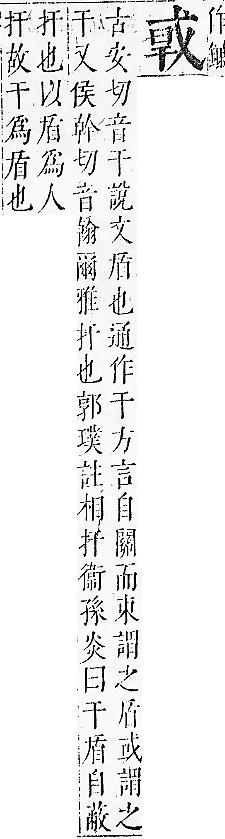 作
古安切音干說文盾也通作干方言自關而東謂之盾或謂之
干又侯幹切音翰爾雅扞也郭璞註相扞衞孫炎曰干盾自蔽
扞也以盾爲人
扞故干爲盾也